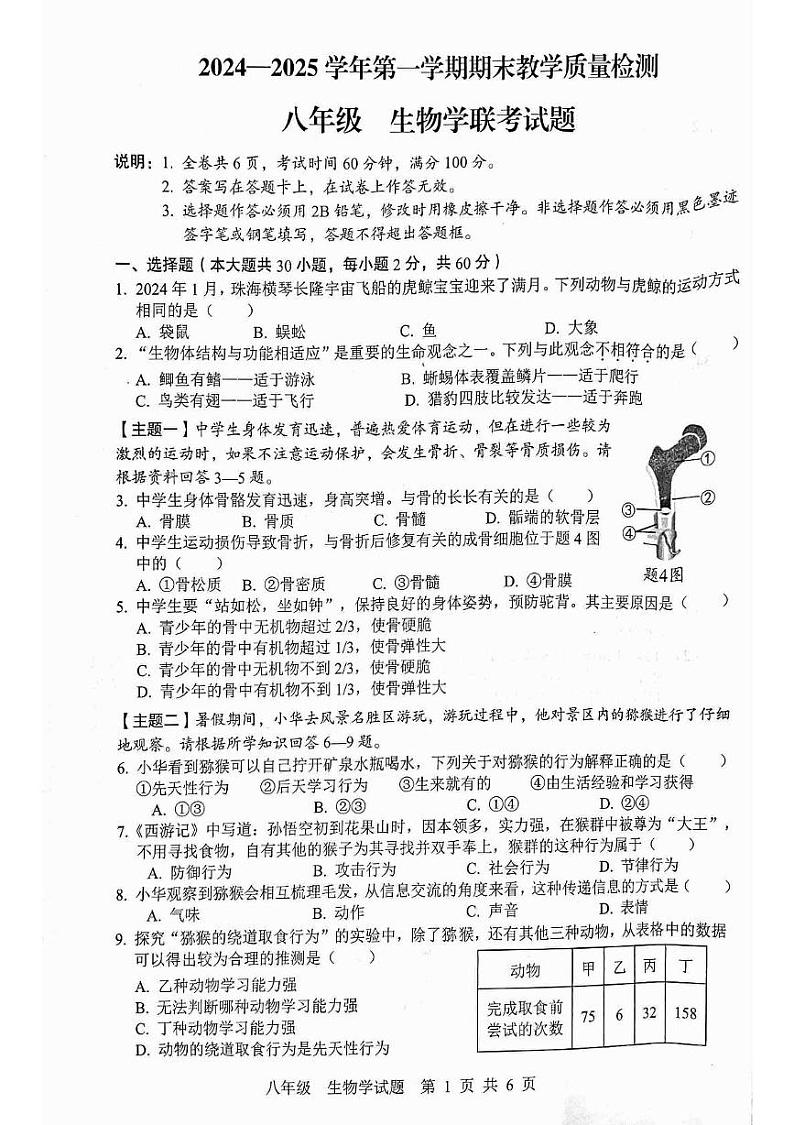 2024—2025 学年第一学期期末教学质量检测
八年级 生物学联考试题
说明：1. 全卷共 6 页，考试时间 60 分钟，满分 100 分。
2. 答案写在答题卡上，在试卷上作答无效。
3. 选择题作答必须用 2B 铅笔，修改时用橡皮擦干净。非选择题作答必须用黑色墨迹
签字笔或钢笔填写，答题不得超出答题框。
一、选择题（本大题共 30 小题，每小题 2 分，共 60 分）
1. 2024 年 1 月，珠海横琴长隆宇宙飞船的虎鲸宝宝迎来了满月。下列动物与虎鲸的运动方式
相同的是（ ）
A. 袋鼠 B. 蜈蚣 C. 鱼 D. 大象
2. “生物体结构与功能相适应”是重要的生命观念之一。下列与此观念不相符合的是（ ）
A. 鲫鱼有鳍——适于游泳 B. 蜥蜴体表覆盖鳞片——适于爬行
C. 鸟类有翅——适于飞行 D. 猎豹四肢比较发达——适于奔跑
【主题一】中学生身体发育迅速，普遍热爱体育运动，但在进行一些较为
激烈的运动时，如果不注意运动保护，会发生骨折、骨裂等骨质损伤。请
根据资料回答 3—5 题。
3. 中学生身体骨骼发育迅速，身高突增。与骨的长长有关的是（ ）
A. 骨膜 B. 骨质 C. 骨髓 D. 骺端的软骨层
4. 中学生运动损伤导致骨折，与骨折后修复有关的成骨细胞位于题 4 图
中的（ ）
A. ①骨松质 B. ②骨密质 C. ③骨髓 D. ④骨膜
①
②
③
④
题4图
5. 中学生要“站如松，坐如钟”，保持良好的身体姿势，预防驼背。其主要原因是（ ）
A. 青少年的骨中无机物超过 2/3，使骨硬脆
B. 青少年的骨中有机物超过 1/3，使骨弹性大
C. 青少年的骨中无机物不到 2/3，使骨硬脆
D. 青少年的骨中有机物不到 1/3，使骨弹性大
【主题二】暑假期间，小华去风景名胜区游玩，游玩过程中，他对景区内的猕猴进行了仔细
地观察。请根据所学知识回答 6—9 题。
6. 小华看到猕猴可以自己拧开矿泉水瓶喝水，下列关于对猕猴的行为解释正确的是（ ）
①先天性行为 ②后天学习行为 ③生来就有的 ④由生活经验和学习获得
A. ①③ B. ②③ C. ①④ D. ②④
7.《西游记》中写道：孙悟空初到花果山时，因本领多，实力强，在猴群中被尊为“大王”，
不用寻找食物，自有其他的猴子为其寻找并双手奉上，猴群的这种行为属于（ ）
A. 防御行为 B. 攻击行为 C. 社会行为 D. 节律行为
8. 小华观察到猕猴会相互梳理毛发，从信息交流的角度来看，这种传递信息的方式是（ ）
A. 气味 B. 动作 C. 声音 D. 表情
9. 探究“猕猴的绕道取食行为”的实验中，除了猕猴，还有其他三种动物，从表格中的数据
可以得出较为合理的推测是（ ）
A. 乙种动物学习能力强
B. 无法判断哪种动物学习能力强
C. 丁种动物学习能力强
D. 动物的绕道取食行为是先天性行为
动物 甲 乙 丙 丁
完成取食前
尝试的次数 75 6 32 158
八年级 生物学试题 第 1 页 共 6 页